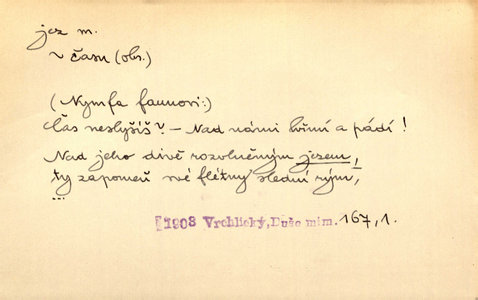 jez m.
~ času (obr.)
(Nymfa faunovi:)
Čas neslyšíš? – Nad námi hřmí a pádí!
Nad jeho divě rozvlněným jezem,
ty zapomeň své flétny slední rým,
...
1903 Vrchlický, Duše mim. 167,1.